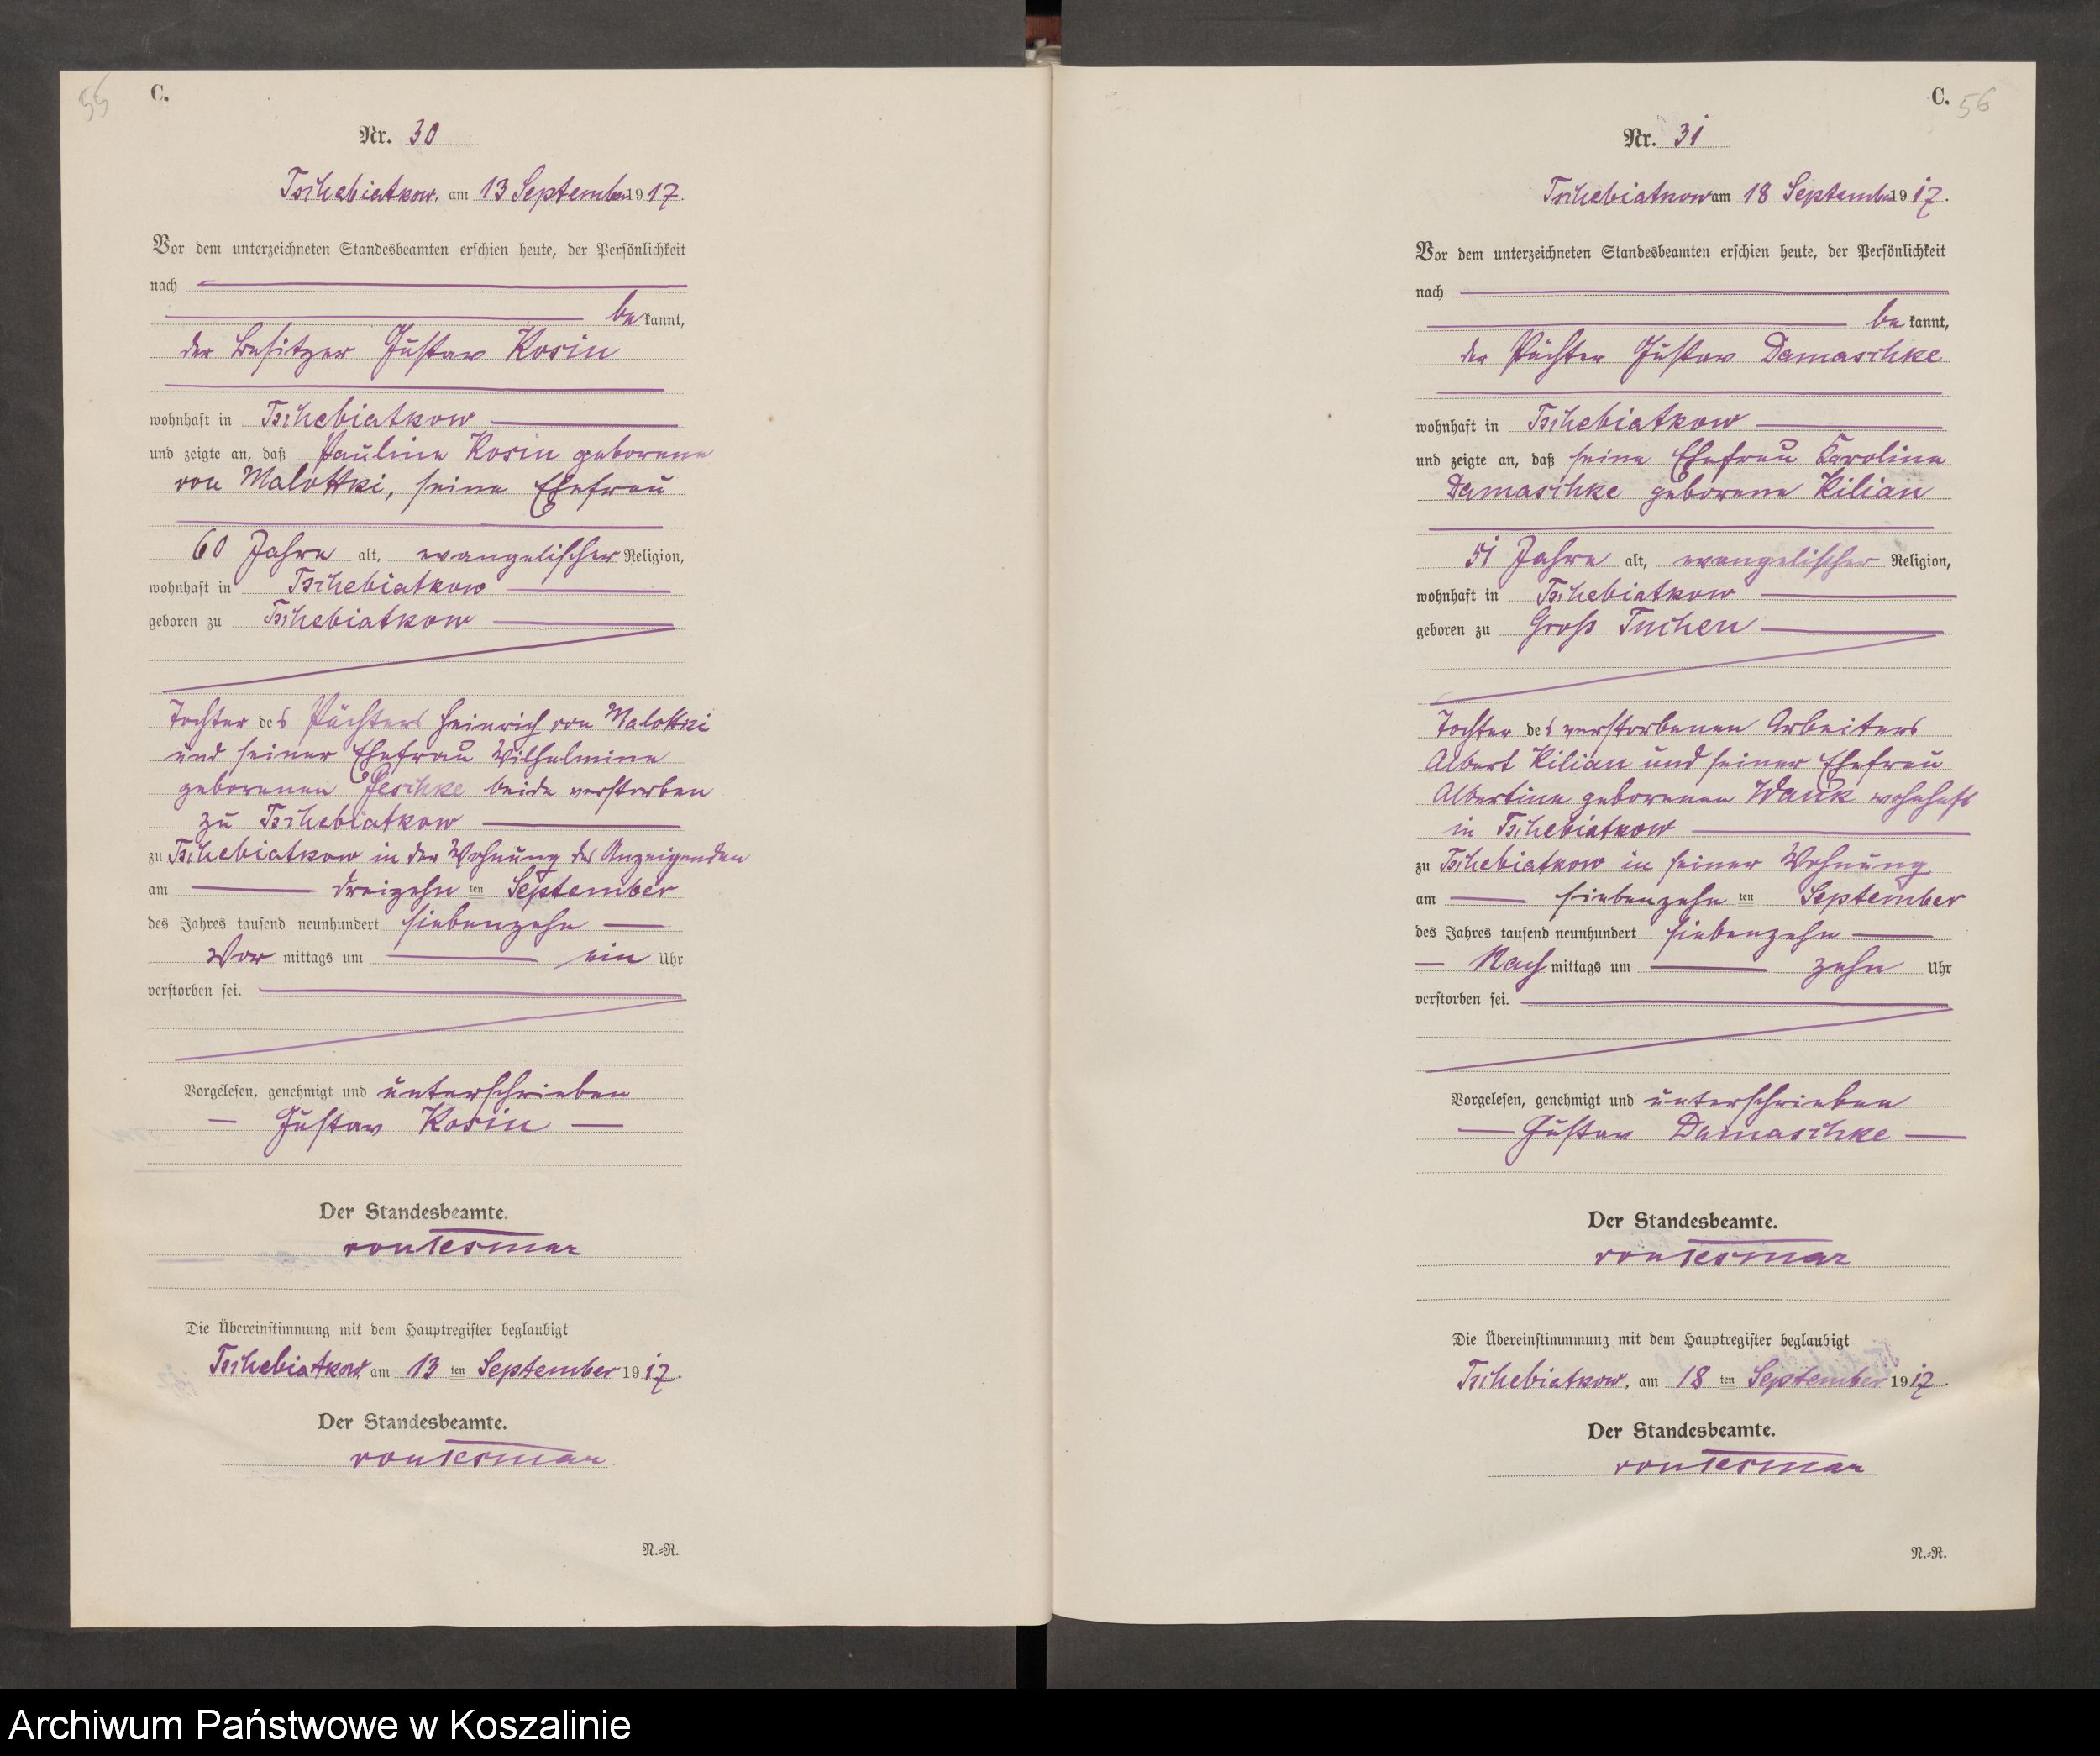 55
C.
Nr. 30
Tschebiatkow, am 13 September 1917.
Vor dem unterzeichneten Standesbeamten erschien heute, der Persönlichkeit
nach
bekannt,
der Besitzer Gustav Kosin
wohnhaft in Tschebiatkow
und zeigte an, daß Pauline Kosin geborene
von Malottki, seine Ehefrau
60 Jahre alt, evangelischer Religion,
wohnhaft in Tschebiatkow
geboren zu Tschebiatkow
Tochter des Pächters Heinrich von Malottki
und seiner Ehefrau Wilhelmine
geborenen Jeschke beide verstorben
zu Tschebiatkow
zu Tschebiatkow in der Wohnung des Anzeigenden
am dreizehn ten September
des Jahres tausend neunhundert siebenzehn
Vor mittags um ein Uhr
verstorben sei.
Vorgelesen, genehmigt und unterschrieben
Gustav Kosin
Der Standesbeamte.
von Tesmar
Die Übereinstimmung mit dem Hauptregister beglaubigt
Tschebiatkow, am 13 ten September 1917.
Der Standesbeamte.
von Tesmar
N.=R.
C. 56
Nr. 31
Tschebiatkow am 18 September 1917.
Vor dem unterzeichneten Standesbeamten erschien heute, der Persönlichkeit
nach
bekannt,
der Pächter Gustav Damaschke
wohnhaft in Tschebiatkow
und zeigte an, daß seine Ehefrau Karoline
Damaschke geborene Kilian
51 Jahre alt, evangelischer Religion,
wohnhaft in Tschebiatkow
geboren zu Groß Tuchen
Tochter des verstorbenen Arbeiters
Albert Kilian und seiner Ehefrau
Albertine geborenen Wauk wohnhaft
in Tschebiatkow
zu Tschebiatkow in seiner Wohnung
am siebenzehn ten September
des Jahres tausend neunhundert siebenzehn
Nach mittags um zehn Uhr
verstorben sei.
Vorgelesen, genehmigt und unterschrieben
Gustav Damaschke
Der Standesbeamte.
von Tesmar
Die Übereinstimmmung mit dem Hauptregister beglaubigt
Tschebiatkow, am 18 ten September 1917.
Der Standesbeamte.
von Tesmar
N.=R.
Archiwum Państwowe w Koszalinie